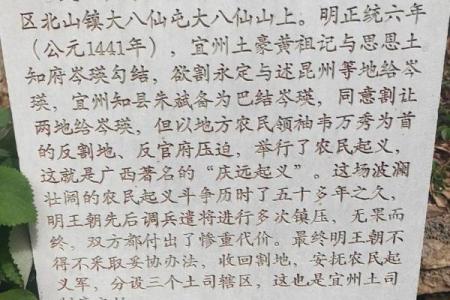 区北山镇大八仙屯大八仙山上。明正统六年
（公元1441年），宜州土豪黄祖记与思恩土
知府岑瑛勾结，欲割永定与述昆州等地给岑
瑛，宜州知县朱斌备为巴结岑瑛，同意割让
两地给岑瑛，但以地方农民领袖韦万秀为首
的反割地、反官府压迫，举行了农民起义，
这就是广西著名的“庆远起义”。这场波澜
壮阔的农民起义斗争历时了五十多年之久，
明王朝先后调兵遣将进行多次镇压，无果而
终，双方都付出了惨重代价。最终明王朝不
得不采取妥协办法，收回割地，安抚农民起
义军，分设三个土司辖区，这也是宜州土司